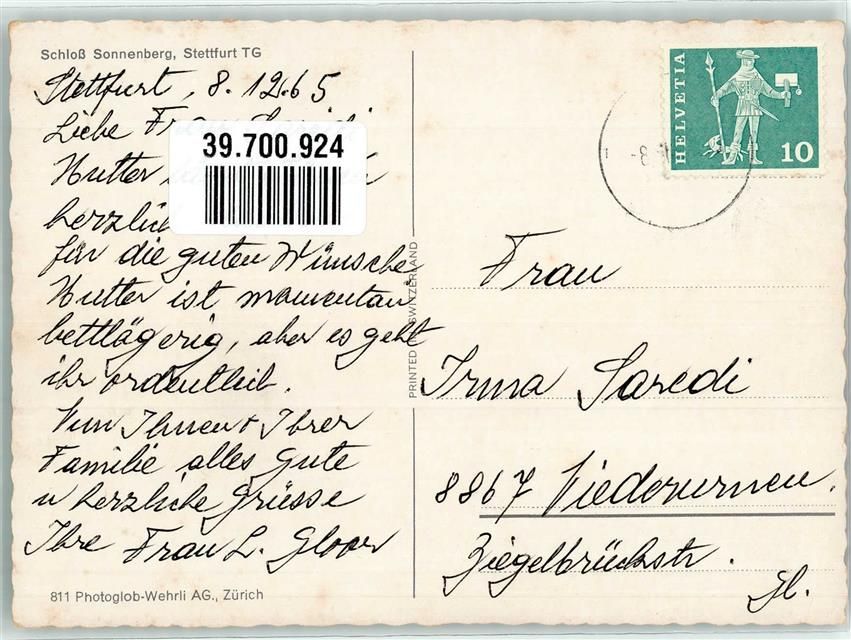 Schloß Sonnenberg, Stettfurt TG
Stettfurt, 8. 12.65
Liebe Frau
Mutter
herzlich
für die guten Wünsche
Mutter ist momentan
bettlägerig, aber es geht
ihr ordentlich.
Nun Ihnen + Ihrer
Familie alles Gute
u herzliche Grüsse
Ihre Frau L. Gloor
811 Photoglob-Wehrli AG., Zürich
39.700.924
PRINTED IN SWITZERLAND
HELVETIA
10
Frau
Irma Saredi
8867 Niederurnen.
Ziegelbrückstr.
Gl.